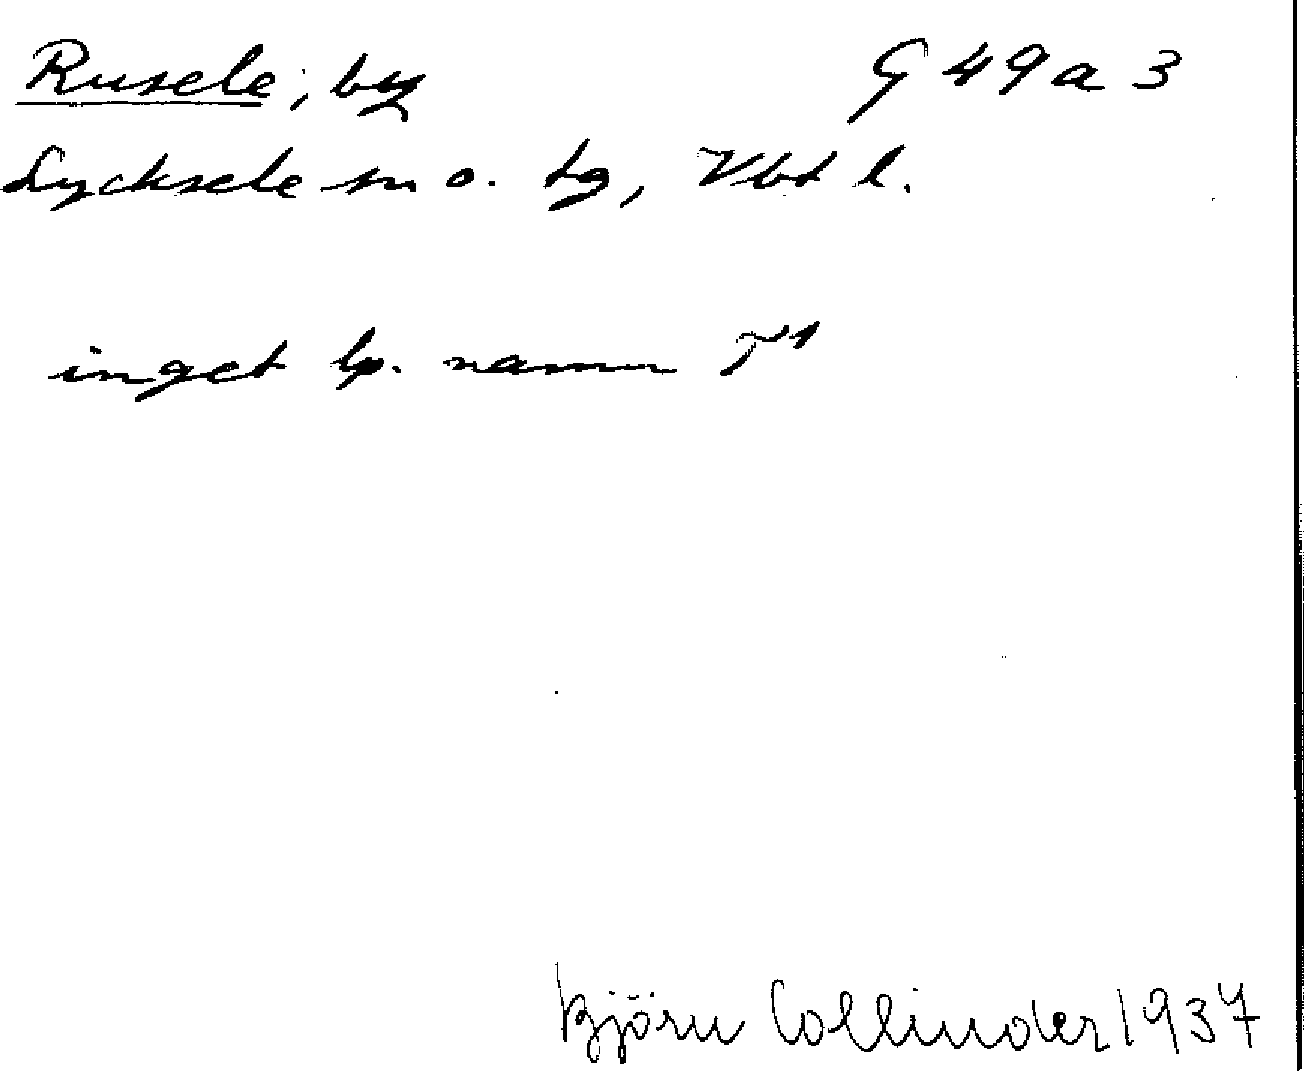 Rusele, by G 49 a 3
Lycksele sn o. tg, Vbt l.
inget lp. namn T1
Björn Collinder 1937